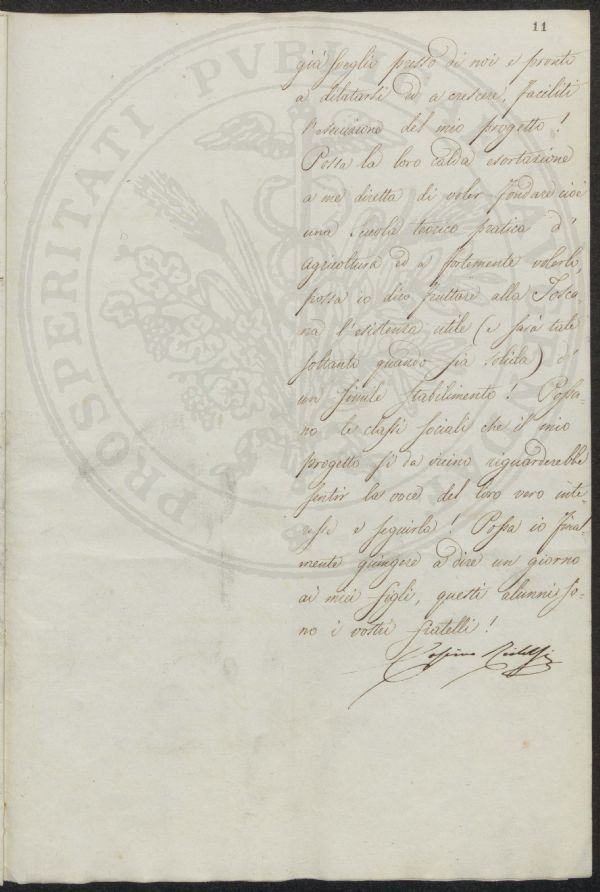 11
già svegli presso di noi e pronti
a dilatarsi ed a crescere, faciliti
l'esecuzione del mio progetto!
Possa la loro calda esortazione
a me diretta di voler fondare cioè
una scuola teorico-pratica d'
agricoltura ed a fortemente volerlo,
possa io dico fruttare alla Tosca=
na l'esistenza utile (e sarà tale
soltanto quando sia solida) d'
un simile stabilimento! Possa=
no le classi sociali che il mio
progetto sì da vicino riguarderebbe
sentir la voce del loro vero inte=
resse e seguirla! Possa io final=
mente giungere a dire un giorno
ai miei figli, questi alunni so=
no i vostri fratelli!
Cosimo Ridolfi
PROSPERITATI PUBLICAE